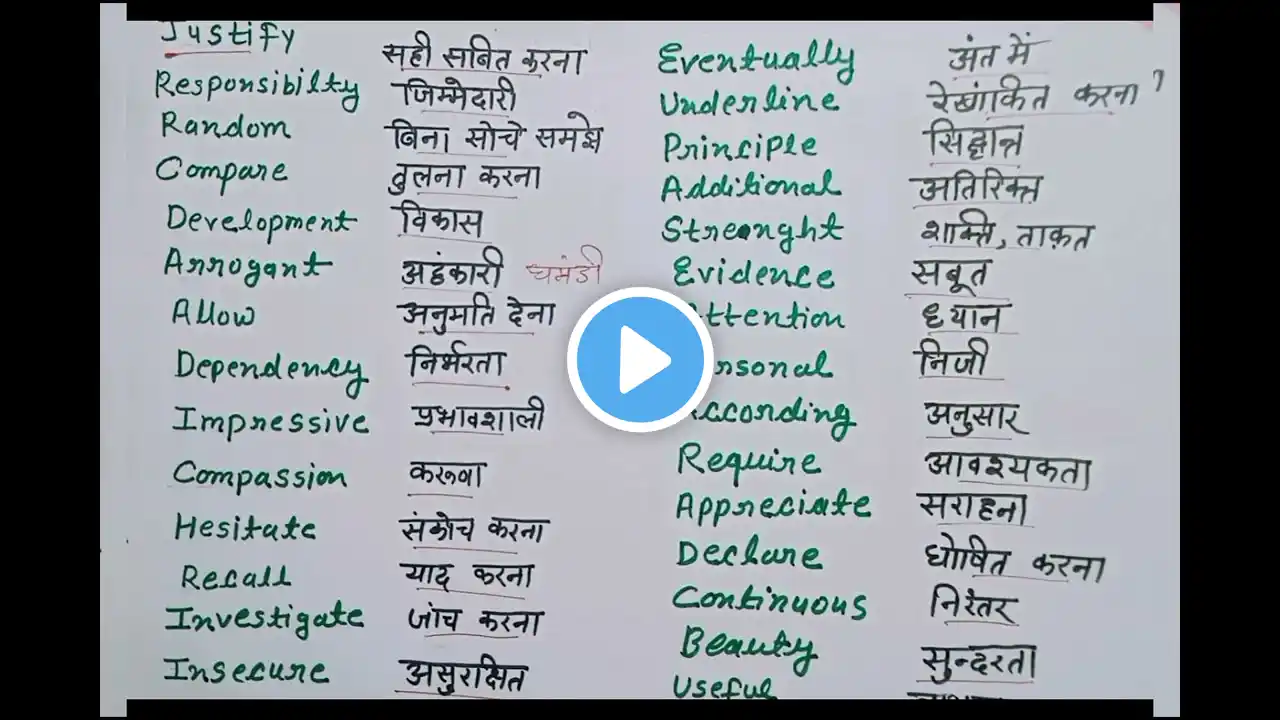 Justify सही सबित करना
Responsibilty जिम्मेदारी
Random बिना सोचे समझे
Compare तुलना करना
Development विकास
Arrogant अहंकारी घमंडी
Allow अनुमति देना
Dependency निर्भरता
Impressive प्रभावशाली
Compassion
Hesitate संकोच करना
Recall याद करना
Investigate जांच करना
Insecure असुरक्षित
Eventually अंत में
Underline रेखांकित करना
Principle सिद्धान्त
Additional अतिरिक्त
Strenght शक्ति, ताक़त
Evidence सबूत
ttention ध्यान
rsonal निजी
ccording अनुसार
Require आवश्यकता
Appreciate सराहना
Declare घोषित करना
Continuous निरंतर
Beauty सुन्दरता
Useful